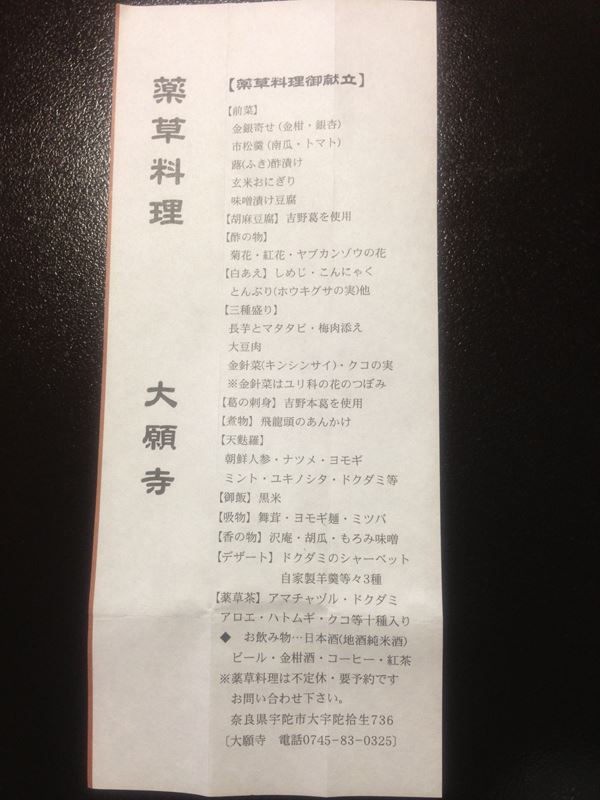 薬草料理　大願寺
【薬草料理御献立】
【前菜】
金銀寄せ(金柑・銀杏)
市松羹(南瓜・トマト)
蕗(ふき)酢漬け
玄米おにぎり
味噌漬け豆腐
【胡麻豆腐】吉野葛を使用
【酢の物】
菊花・紅花・ヤブカンゾウの花
【白あえ】しめじ・こんにゃく
とんぶり(ホウキグサの実)他
【三種盛り】
長芋とマタタビ・梅肉添え
大豆肉
金針菜(キンシンサイ)・クコの実
※金針菜はユリ科の花のつぼみ
【葛の刺身】吉野本葛を使用
【煮物】飛龍頭のあんかけ
【天麩羅】
朝鮮人参・ナツメ・ヨモギ
ミント・ユキノシタ・ドクダミ等
【御飯】黒米
【吸物】舞茸・ヨモギ麺・ミツバ
【香の物】沢庵・胡瓜・もろみ味噌
【デザート】ドクダミのシャーベット
自家製羊羹等々3種
【薬草茶】アマチャヅル・ドクダミ
アロエ・ハトムギ・クコ等十種入り
◆　お飲み物…日本酒(地酒純米酒)
ビール・金柑酒・コーヒー・紅茶
※薬草料理は不定休・要予約です
お問い合わせ下さい。
奈良県宇陀市大宇陀拾生736
〔大願寺　電話0745-83-0325〕